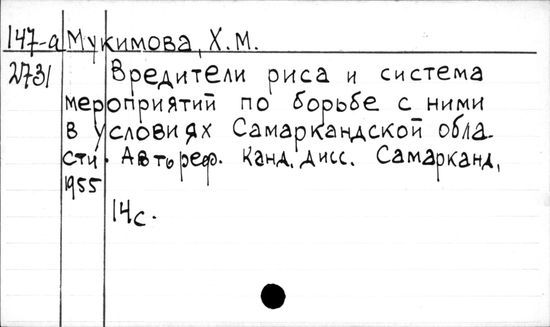 147-а Мукимова, Х.М.
2731 Вредители риса и система
мероприятий по борьбе с ними
в условиях Самаркандской обла-
сти. Автореф. Канд. дисс. Самарканд,
1955
14с.